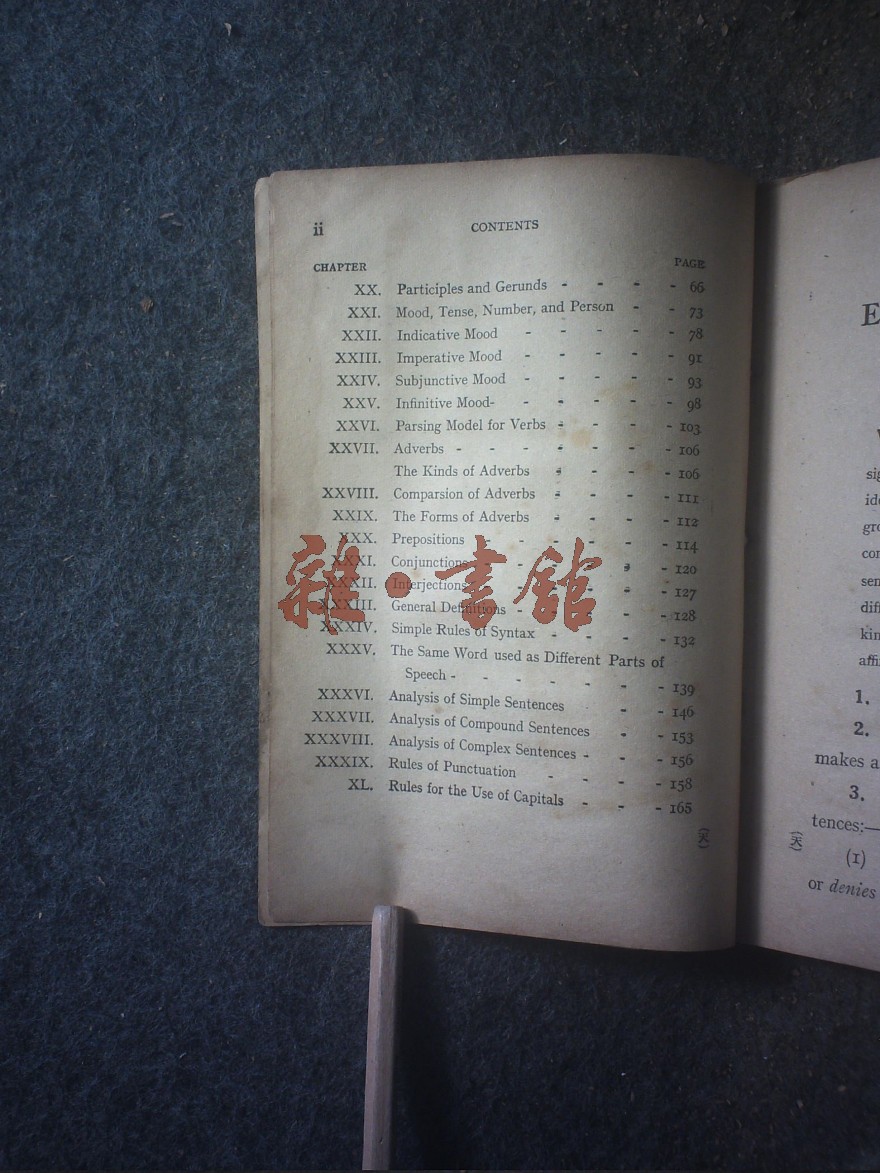 ii
CONTENTS
CHAPTER PAGE
XX. Participles and Gerunds - - - - 66
XXI. Mood, Tense, Number, and Person - - 73
XXII. Indicative Mood - - - - - 78
XXIII. Imperative Mood - - - - - 91
XXIV. Subjunctive Mood - - - - - 93
XXV. Infinitive Mood- - - - - - 98
XXVI. Parsing Model for Verbs - - - - 103
XXVII. Adverbs - - - - - - - 106
The Kinds of Adverbs - - - - 106
XXVIII. Comparsion of Adverbs - - - - 111
XXIX. The Forms of Adverbs - - - - 112
XXX. Prepositions - - - - - 114
XXXI. Conjunctions - - - - - 120
XXXII. Interjections - - - - 127
XXXIII. General Definitions - - - - - 128
XXXIV. Simple Rules of Syntax - - - - 132
XXXV. The Same Word used as Different Parts of
Speech - - - - - - - 139
XXXVI. Analysis of Simple Sentences - - 146
XXXVII. Analysis of Compound Sentences - - 153
XXXVIII. Analysis of Complex Sentences - - - 156
XXXIX. Rules of Punctuation - - - - 158
XL. Rules for the Use of Capitals - - - 165
(天)
雜·書館
E
1.
2.
makes a
3.
tences:—
(天)
(1)
or denies